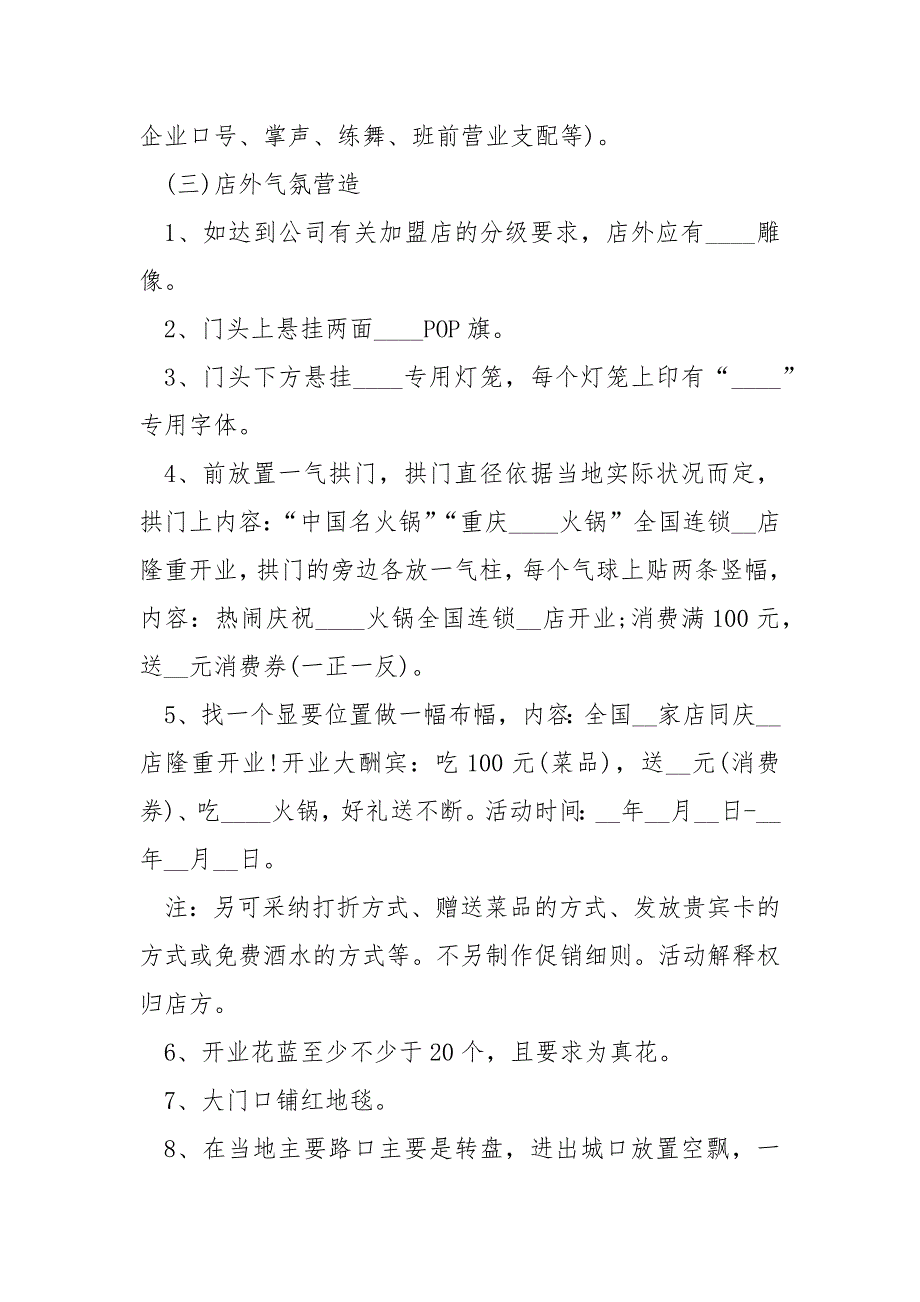 企业口号、掌声、练舞、班前营业支配等)。
(三)店外气氛营造
1、如达到公司有关加盟店的分级要求，店外应有____雕
像。
2、门头上悬挂两面____POP 旗。
3、门头下方悬挂____专用灯笼，每个灯笼上印有“____”
专用字体。
4、前放置一气拱门，拱门直径依据当地实际状况而定，
拱门上内容：“中国名火锅”“重庆____火锅”全国连锁__店
隆重开业，拱门的旁边各放一气柱，每个气球上贴两条竖幅，
内容：热闹庆祝____火锅全国连锁__店开业;消费满 100 元，
送__元消费券(一正一反)。
5、找一个显要位置做一幅布幅，内容：全国__家店同庆__
店隆重开业!开业大酬宾：吃 100 元(菜品)，送__元(消费
券)、吃____火锅，好礼送不断。活动时间：__年__月__日-__
年__月__日。
注：另可采纳打折方式、赠送菜品的方式、发放贵宾卡的
方式或免费酒水的方式等。不另制作促销细则。活动解释权
归店方。
6、开业花蓝至少不少于 20 个，且要求为真花。
7、大门口铺红地毯。
8、在当地主要路口主要是转盘，进出城口放置空飘，一